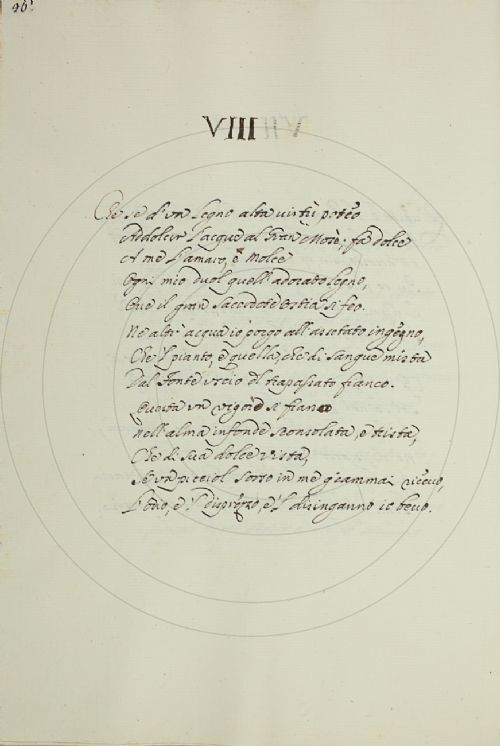 46.
VIII
Che se d'un legno alta virtù poteo
Addolcir l'acque al gran Mosè; fa dolce
A me l'amaro, e molce
Ogni mio duol quell'adorato legno,
Ove il gran Sacerdote Ostia si feo.
Nè altr'acqua io porgo all'assetato ingegno,
Che 'l pianto, e quella, che di sangue mista
Dal fonte uscio del trapassato fianco.
Questa un vigor sì franco
nell'alma infonde sconsolata, e trista,
Che di sua dolce vista,
Se un picciol sorso in me giammai ricevo,
L'Odio, e 'l disprezzo, e 'l disinganno io bevo.